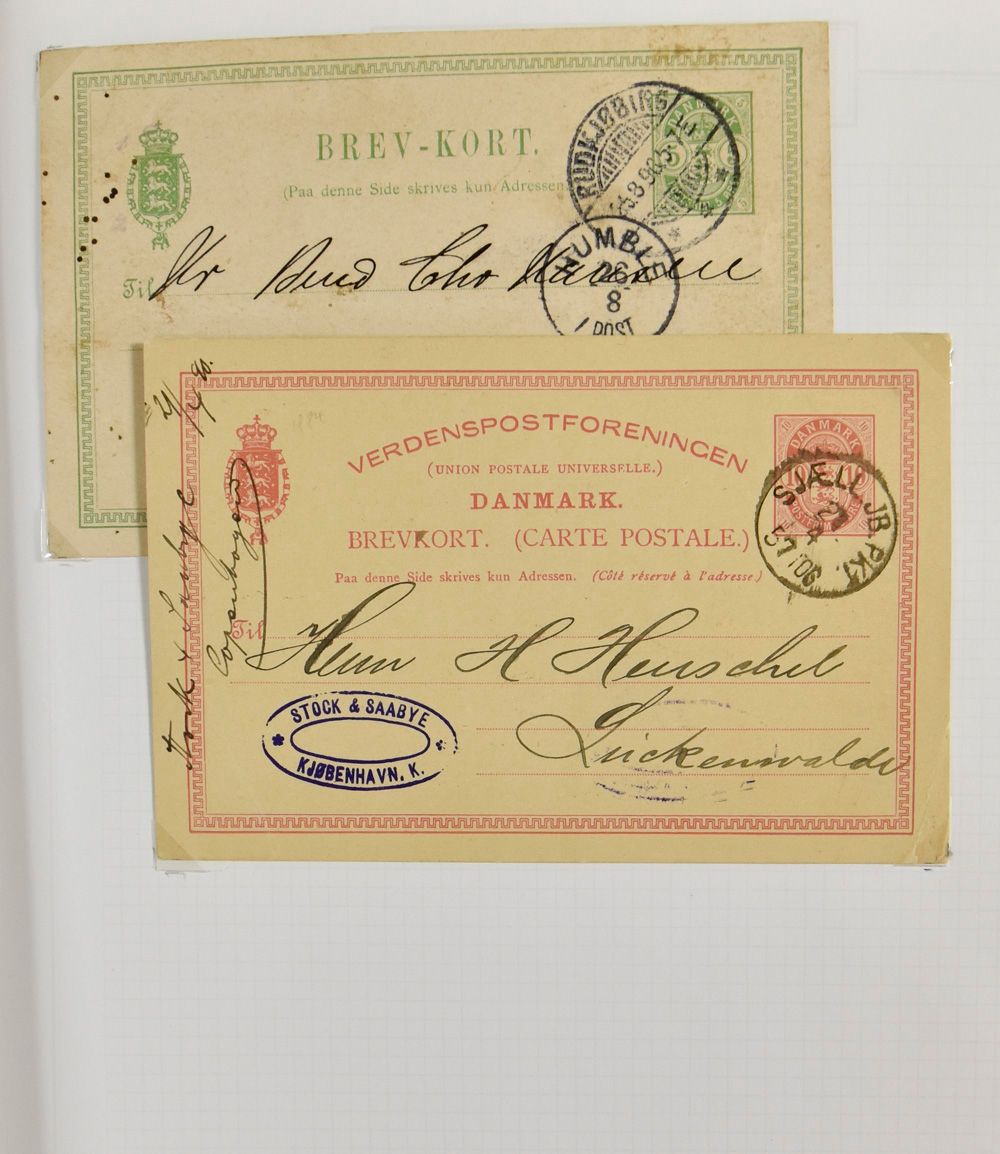 BREV-KORT.
(Paa denne Side skrives kun Adressen
DANMARK
5
RUDKJØBING
HUMBLE
26
8
POST
Til Hr
VERDENSPOSTFORENINGEN
(UNION POSTALE UNIVERSELLE.)
DANMARK.
BREVKORT. (CARTE POSTALE.)
Paa denne Side skrives kun Adressen. (Côté réservé à l'adresse.)
1884
10 DANMARK 10
SJÆLL. JB. PKT.
2
4
57 TOG
Til Herrn H Henschel
Luckenwalde
STOCK & SAABYE
KJØBENHAVN. K.
Stock & Saabye
Copenhagen